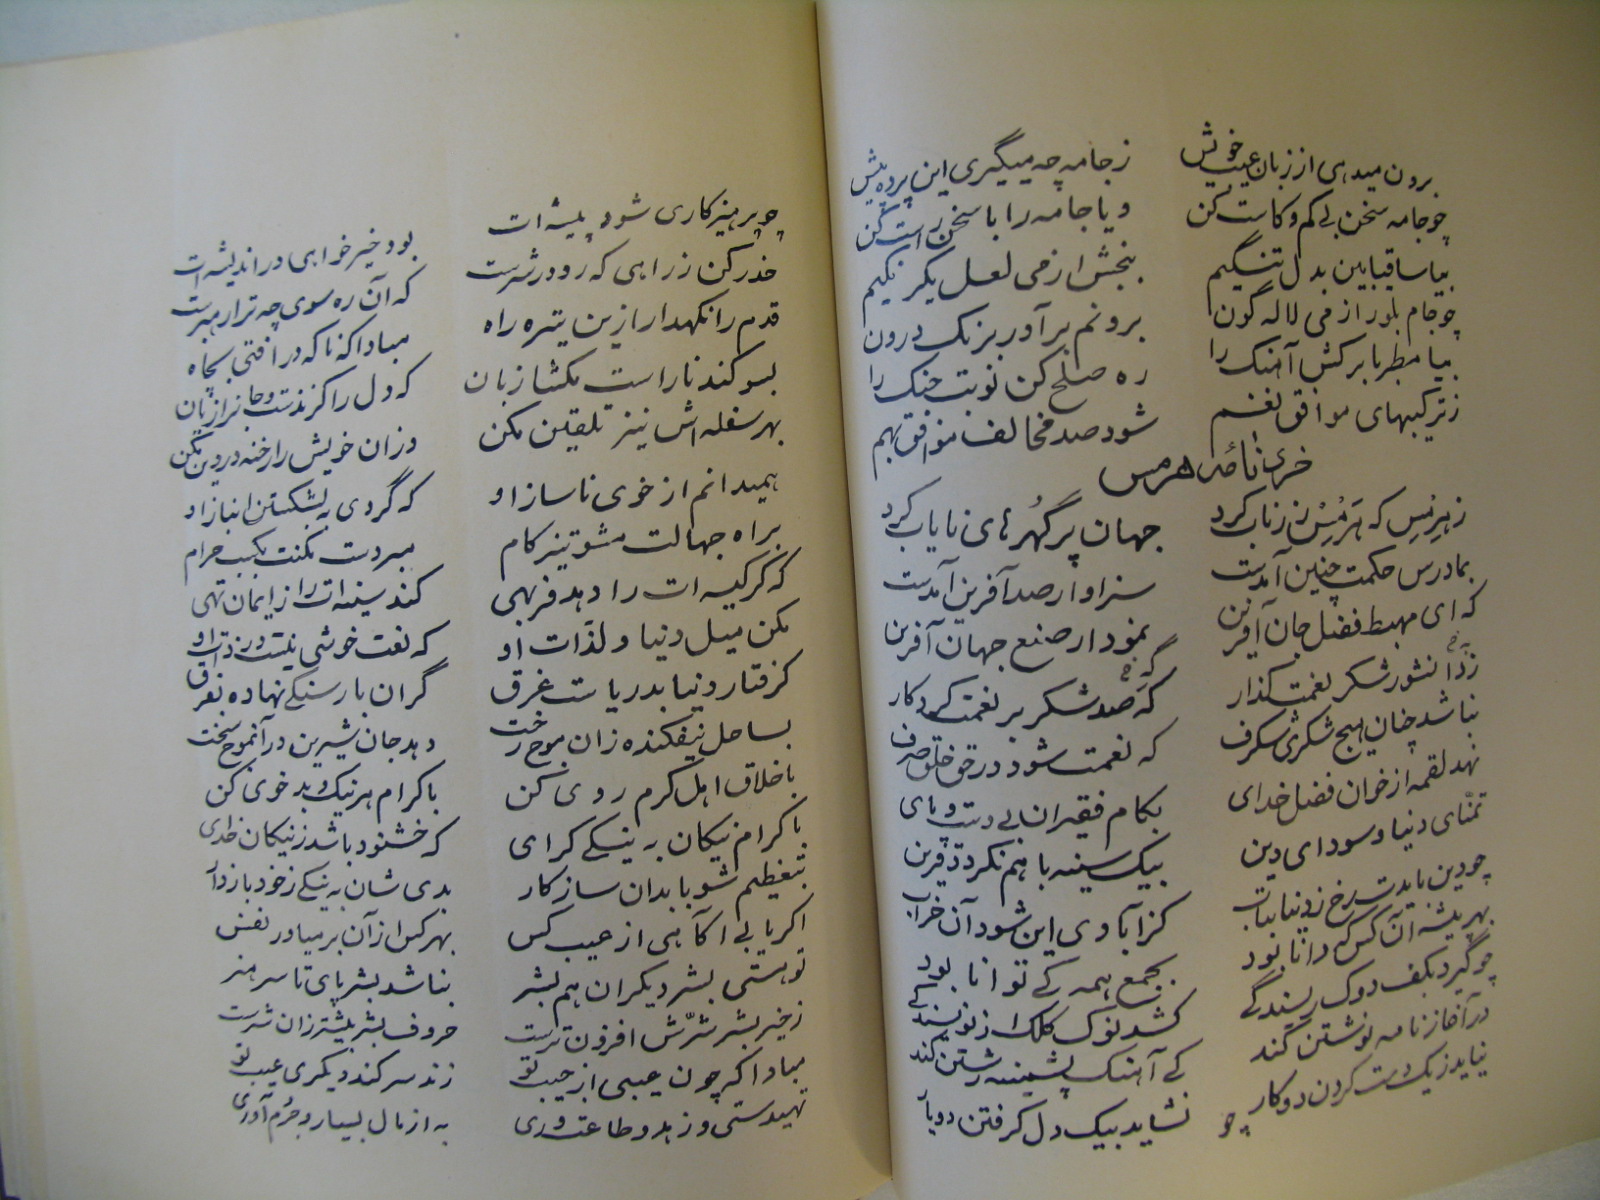 برون میدهی از زبان عیب خویش
ز جامه چه میگیری این پرده پیش
چو جامه سخن بی کم و کاست کن
و یا جامه را با سخن راست کن
بیا ساقیا بین بدل تنگیم
ببخش از می لعل یکرنگیم
چو جام بلور از می لاله گون
برونم برآور برنگ درون
بیا مطربا برکش آهنگ را
ره صلح کن نوبت جنگ را
ز ترکیبهای موافق نغم
شود صد مخالف موافق بهم
خردنامه هرمس
ز هرمس که هرمس زر ناب کرد
جهان پر گهرهای نایاب کرد
بمادرس حکمت چنین آمدست
سزاوار صد آفرین آمدست
که ای مهبط فضل جان آفرین
نمودار صنع جهان آفرین
ز دانشور شکر نعمت گذار
که صد شکر بر نعمت کردگار
نباشد چنان هیچ شکری شگرف
که نعمت شود در حق خلق صرف
نهد لقمه از خوان فضل خدای
بکام فقیران بی دست و پای
تمنّای دنیا و سودای دین
بیک سینه با هم نگردد قرین
چو دین بایدت رخ ز دنیا بتاب
کز آبادی این شود آن خراب
بهر پیشه آن کس که دانا بود
بجمع همه کی توانا بود
چو گیرد بکف دوک ریسندگی
کشد نوک کلک از نویسندگی
در آغاز نامه نوشتن کند
کی آهنگ پشمینه رشتن کند
نیاید ز یک دست کردن دو کار
نشاید بیک دل گرفتن دو یار
چو
چو پرهیزکاری شود پیشه ات
بود خیرخواهی در اندیشه ات
حذر کن ز راهی که رو در شرست
که آن ره سوی چه ترا رهبرست
قدم را نگهدار ازین تیره راه
مبادا که ناگه در افتی بچاه
بسوگند ناراست مگشا زبان
که دل را گزندست و جان را زیان
بهر سفله اش نیز تلقین مکن
وزان خویش را رخنه در دین مکن
همیدانم از خوی ناساز او
که گردی به بشکستن انباز او
براه جهالت مشو تیز کام
مبر دست مکنت بکسب حرام
که گر کیسه ات را دهد فربهی
کند سینه ات را ز ایمان تهی
مکن میل دنیا و لذّات او
که نعت خوشی نیست در ذات او
گرفتار دنیا بدریاست غرق
گران بار سنگی نهاده بفرق
بساحل نیفکنده زان موج رخت
دهد جان شیرین در آن موج سخت
باخلاق اهل کرم روی کن
باکرام هر نیک و بد خوی کن
باکرام نیکان به نیکی گرای
که خشنود باشد ز نیکان خدای
بتعظیم شو با بدان سازکار
بدی شان به نیکی ز خود باز دار
اگر یابی آگاهی از عیب کس
بهر کس از آن بر میاور نفس
تو هستی بشر دیگران هم بشر
نباشد بشر پای تا سر هنر
ز خیر بشر شرّش افزون ترست
حروف بشر بیشتر زان شرست
مبادا که چون عیبی از جیب تو
زند سر کند دیگری عیب تو
تهیدستی و زهد و طاعت وری
به از مال بسیار و جرم آوری